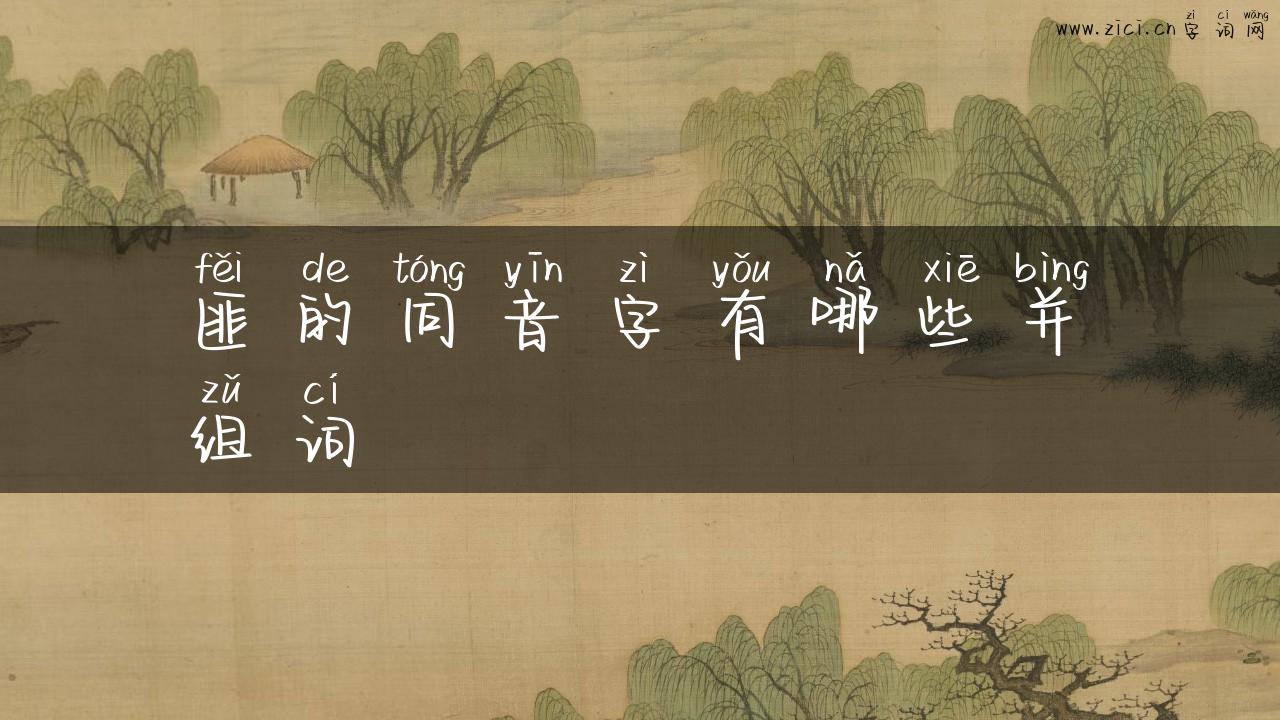 zì cí wǎng
www.zici.cn 字词网
fěi de tóng yīn zì yǒu nǎ xiē bìng
匪的同音字有哪些并
zǔ cí
组词